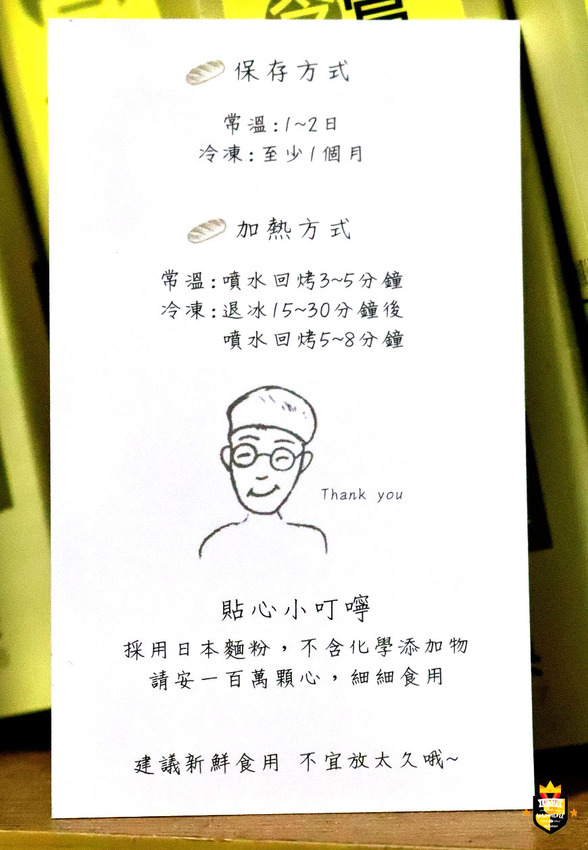 保存方式
常溫:1~2日
冷凍:至少1個月
加熱方式
常溫:噴水回烤3~5分鐘
冷凍:退冰15~30分鐘後
噴水回烤5~8分鐘
Thank you
貼心小叮嚀
採用日本麵粉，不含化學添加物
請安一百萬顆心，細細食用
建議新鮮食用 不宜放太久哦~